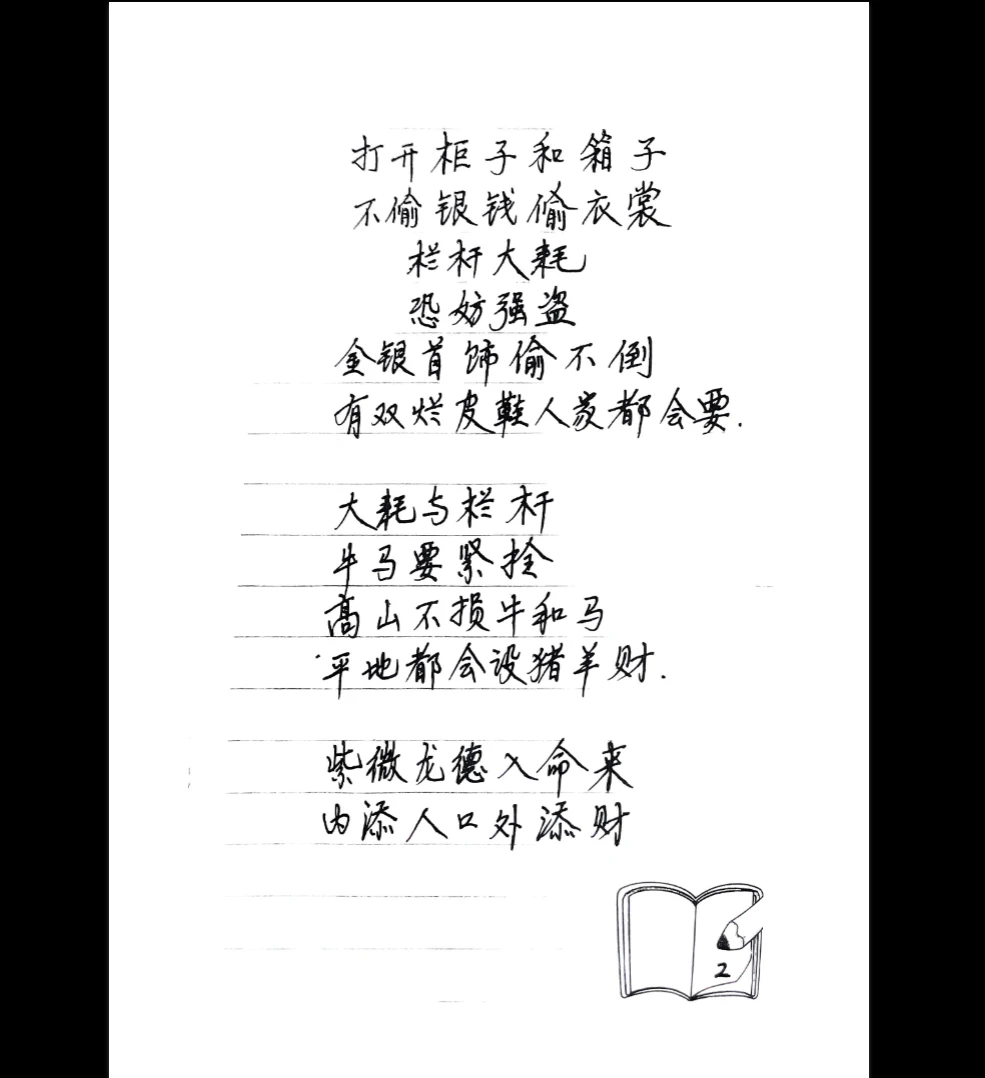 打开柜子和箱子
不偷银钱偷衣裳
栏杆大耗
恐妨强盗
金银首饰偷不倒
有双烂皮鞋人家都会要.
大耗与栏杆
牛马要紧拴
高山不损牛和马
平地都会设猪羊财.
紫微龙德入命来
内添人口外添财
2